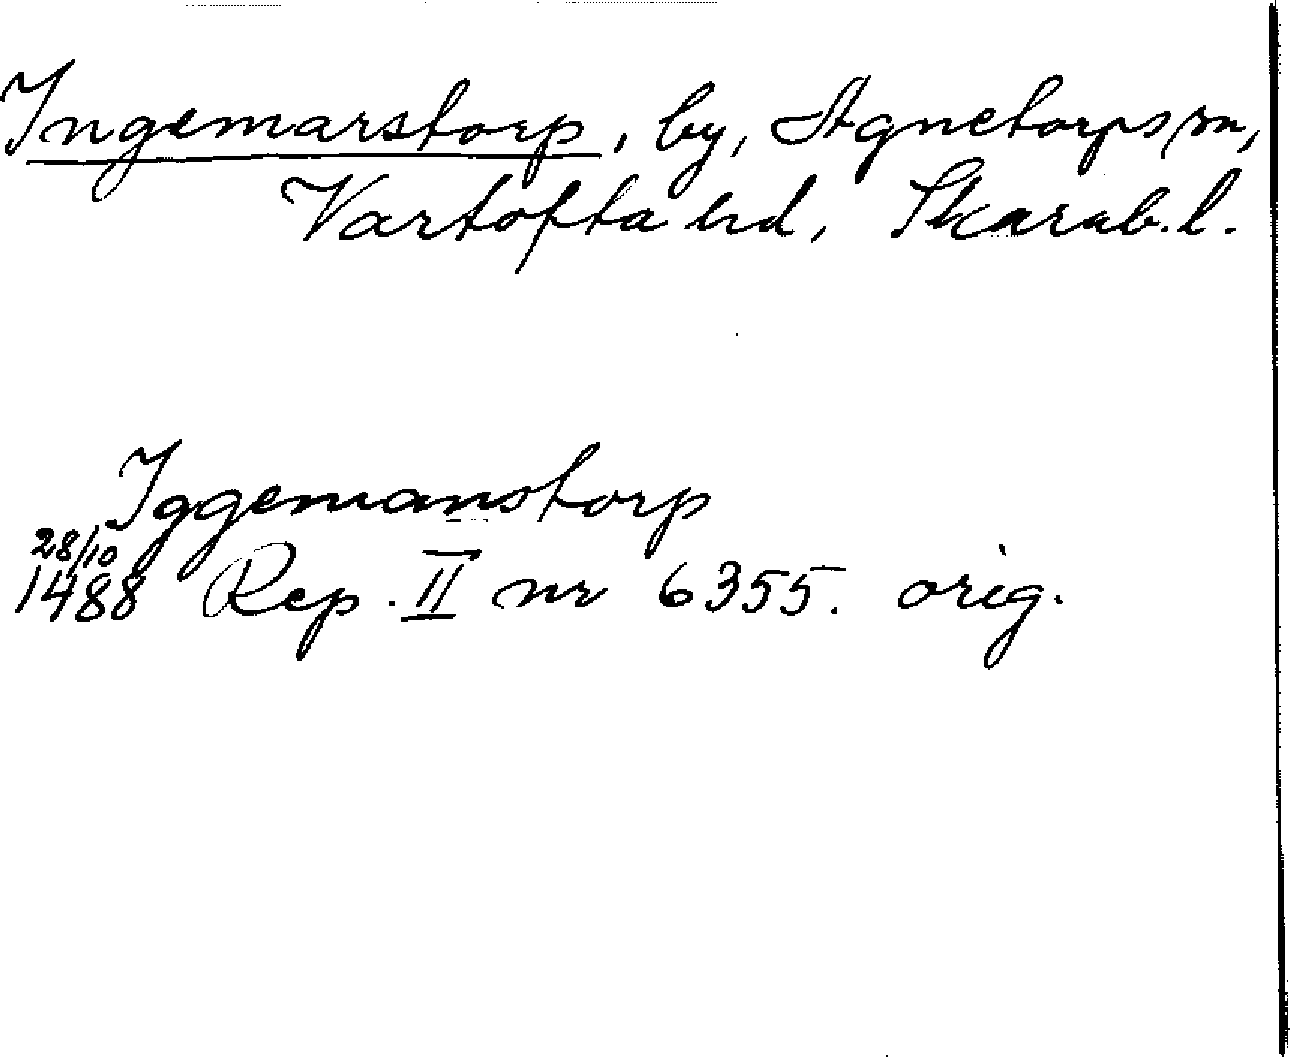 Ingemarstorp, by, Agnetorps sn,
Vartofta hd, Skarab. l.
Iggemanstorp
28/10
1488 Rep. II nr 6355. orig.